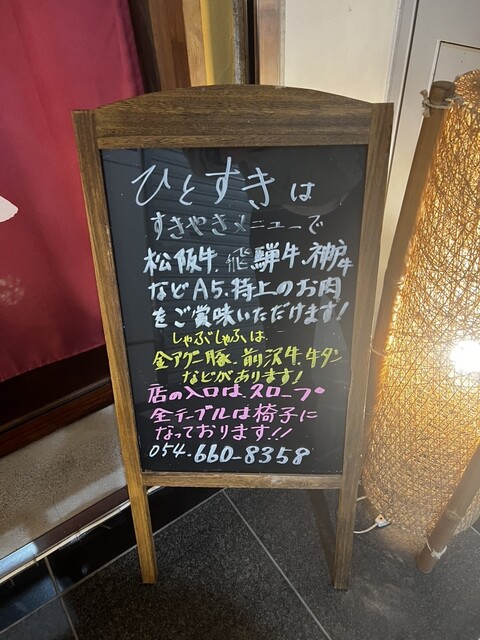 ひとすきは
すきやきメニューで
松阪牛、飛騨牛、神戸牛
などA5、特上のお肉
をご賞味いただけます!
しゃぶしゃぶは、
金アグー豚、前沢牛、牛タン
などがあります!
店の入口は、スロープ。
全テーブルは椅子に
なっております!!
054-660-8358